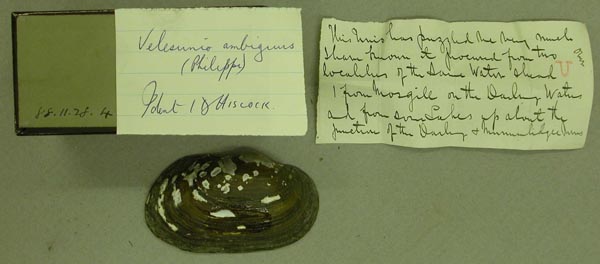 88.11.28.4
Velesunio ambiguus
(Philippi)
Ident I D Hiscock.
This Unio has puzzled me very much
I have known it procured from two
localities of the same Water shead
1 from on the Darling Waters
and from some Lakes up about the
junction of the Darling &
Over
U